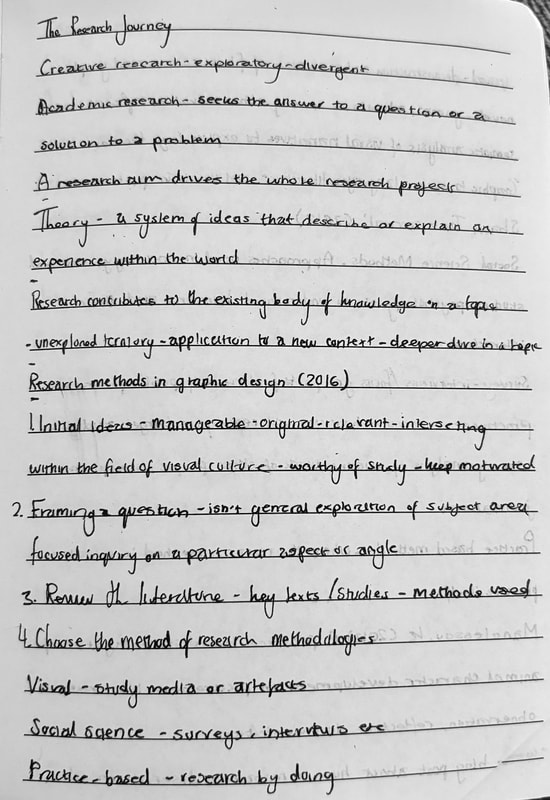 The Research Journey
Creative research - exploratory - divergent
Academic research - seeks the answer to a question or a
solution to a problem
A research aim drives the whole research projects
Theory - a system of ideas that describe or explain an
experience within the world
Research contributes to the existing body of knowledge on a topic
- unexplored territory - application to a new context - deeper dive in a topic
Research methods in graphic design (2016)
1. Initial ideas - manageable - original - relevant - interesting
within the field of visual culture - worthy of study - keep motivated
2. Framing a question - isn't general exploration of subject area
focused inquiry on a particular aspect or angle
3. Review the literature - key texts / studies - methods used
4. Choose the method of research methodologies
Visual - study media or artefacts
Social science - surveys, interviews etc
Practice - based - research by doing